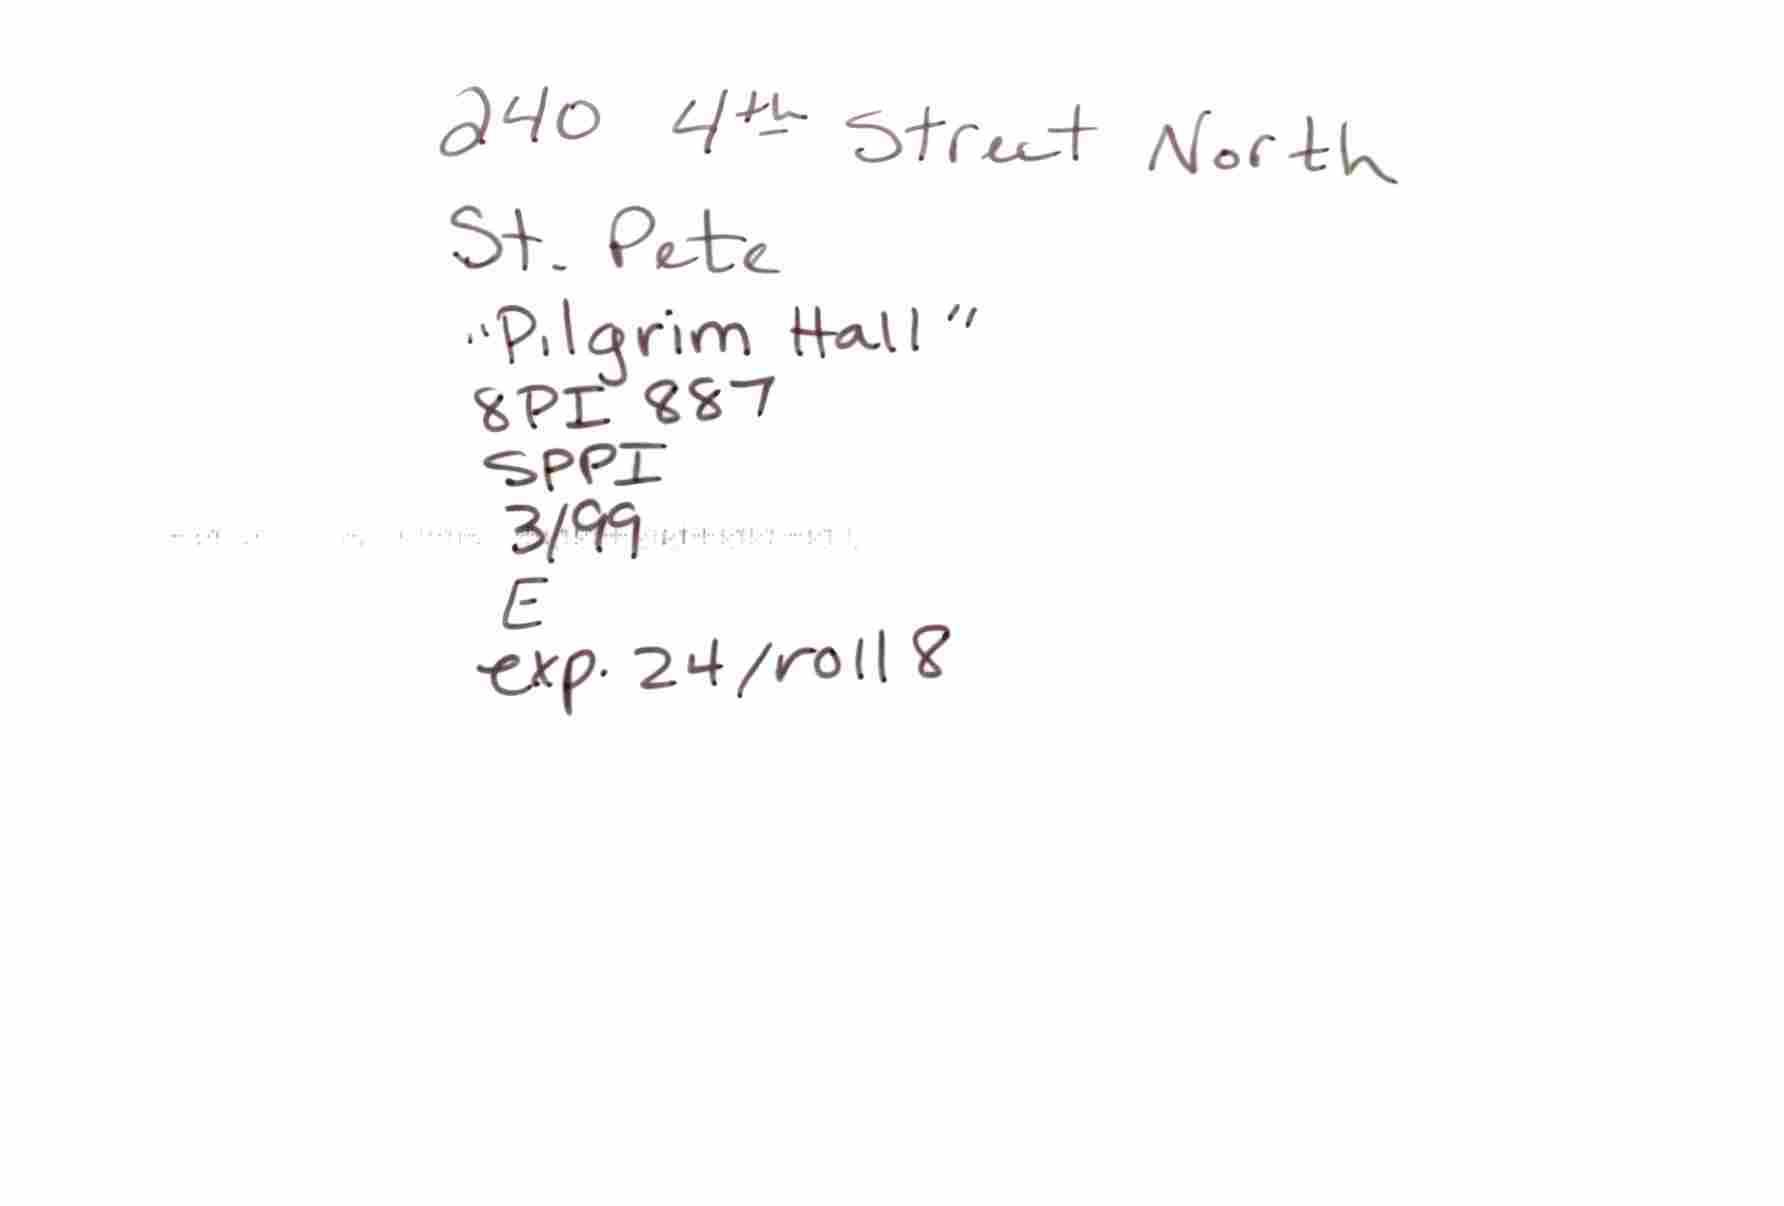 240 4th Street North
St. Pete
"Pilgrim Hall"
8PI 887
SPPI
3/99
E
exp. 24/roll 8